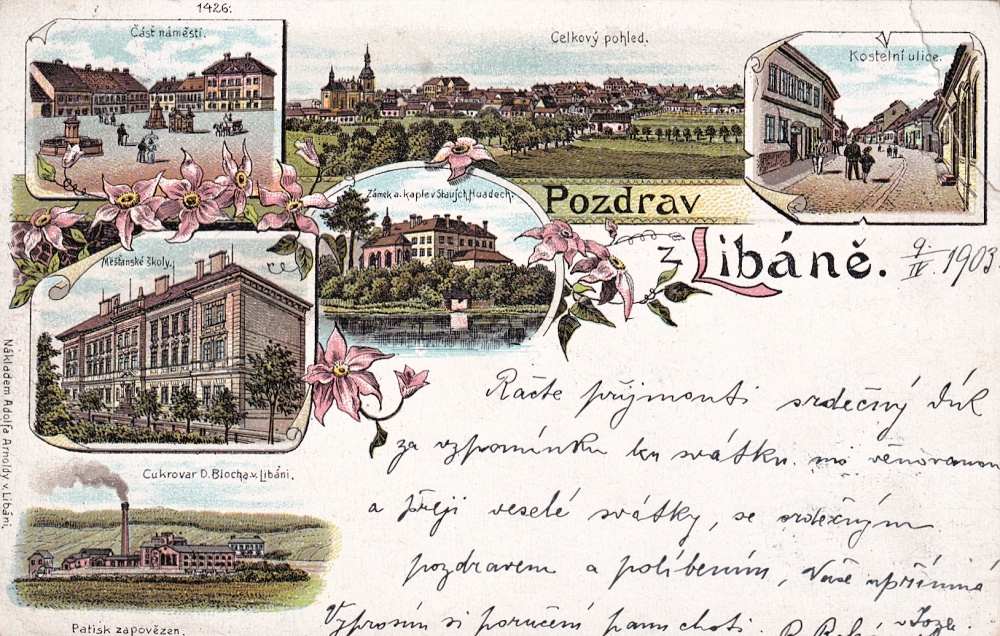 1426.
Část náměstí.
Celkový pohled.
Kostelní ulice.
Zámek a. kaple v Starých Hradech.
Pozdrav
z Libáně. 9./IV. 1903.
Měšťanské školy.
Cukrovar D. Blocha v. Libáni.
Nákladem Adolfa Arnoldy v Libáni.
Patisk zapovězen.
Račte přijmouti srdečný dík
za vzpomínku ku svátku mně věnovanou
a přeji veselé svátky, se srdečným
pozdravem a políbením, Vaše upřímná
Vyprosím si poručení panu choti.